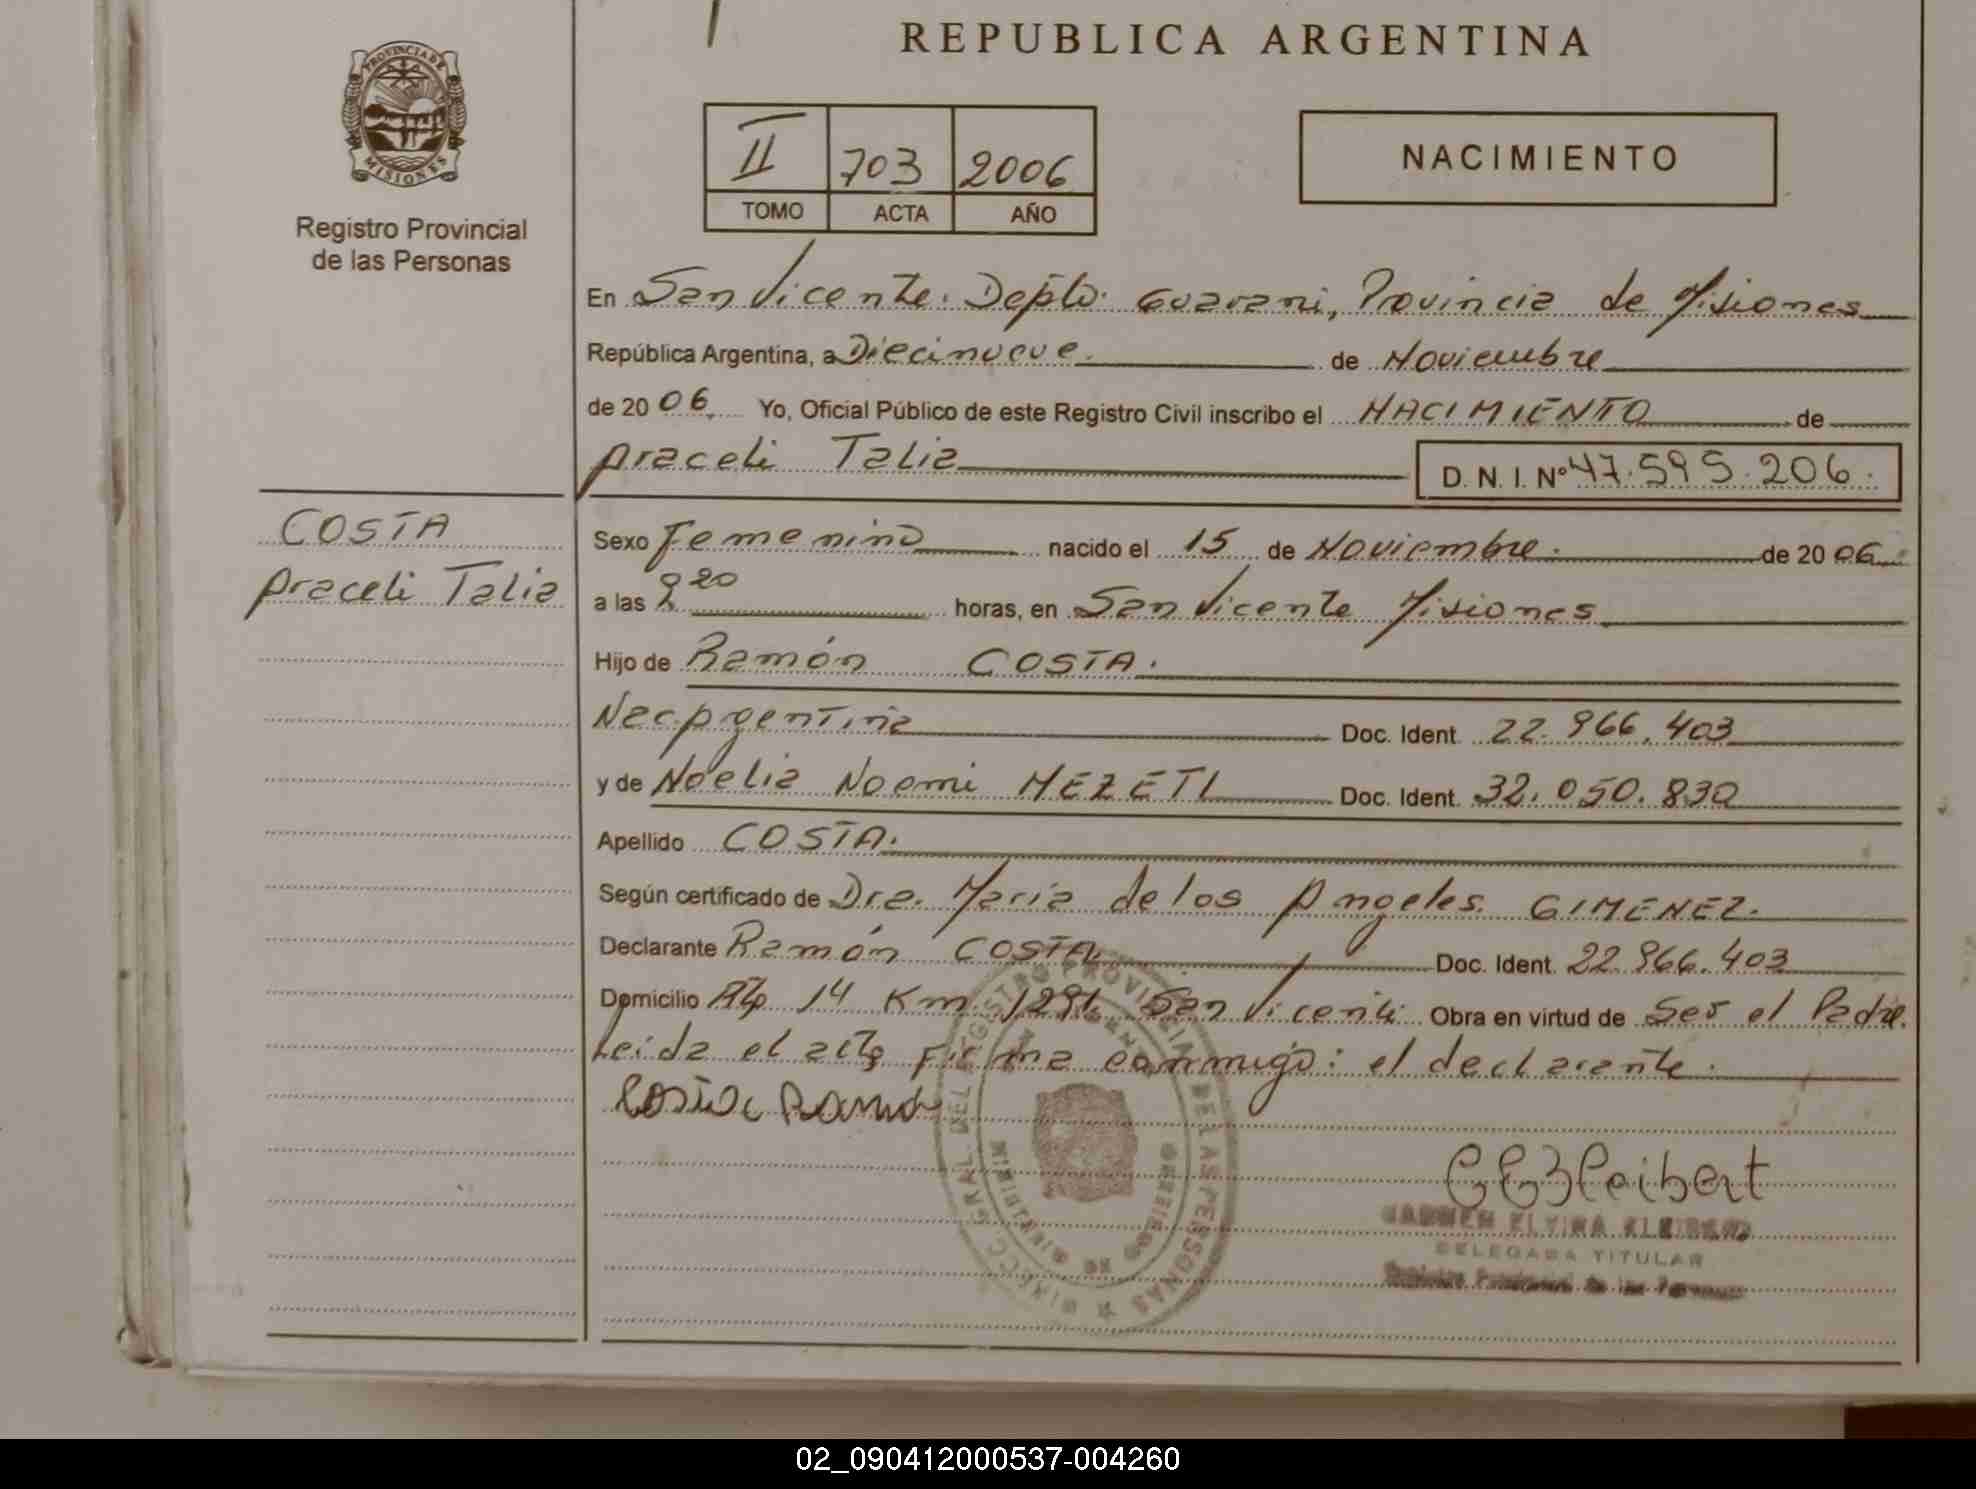 REPUBLICA ARGENTINA
PROVINCIA DE
MISIONES
Registro Provincial
de las Personas
II 703 2006
TOMO ACTA AÑO
NACIMIENTO
En San Vicente. Depto. Guarani, Provincia de Misiones
República Argentina, a Diecinueve. de Noviembre
de 20 06. Yo, Oficial Público de este Registro Civil inscribo el NACIMIENTO de
Araceli Talia
D. N. I. Nº 47.595.206.
COSTA
Araceli Talia
Sexo Femenino nacido el 15 de Noviembre. de 20 06
a las 8 20 horas, en San Vicente Misiones
Hijo de Ramón COSTA.
Nac. Argentina Doc. Ident. 22.966.403
y de Noelia Noemi MEZETI Doc. Ident. 32.050.830
Apellido COSTA.
Según certificado de Dra. Maria de los Angeles GIMENEZ.
Declarante Ramón COSTA Doc. Ident. 22.966.403
Domicilio 14 Km. San Vicente Obra en virtud de Ser el Padre.
Leida el acta Firma conmigo: el declarante.
Costa Ramon
CARMEN ELVIRA
DELEGADA TITULAR
Registro Provincial de las Personas
02_090412000537-004260